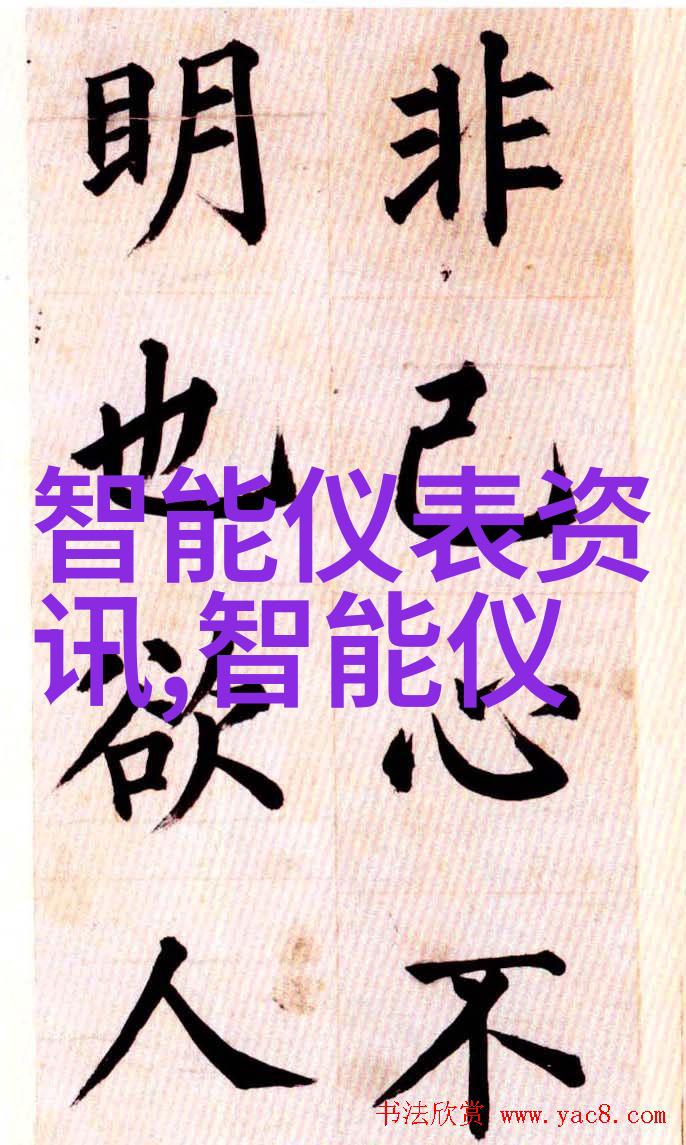 非己心不
明也欲人
智能仪表资
讯,智能仪
书法欣赏 www.yac8.com